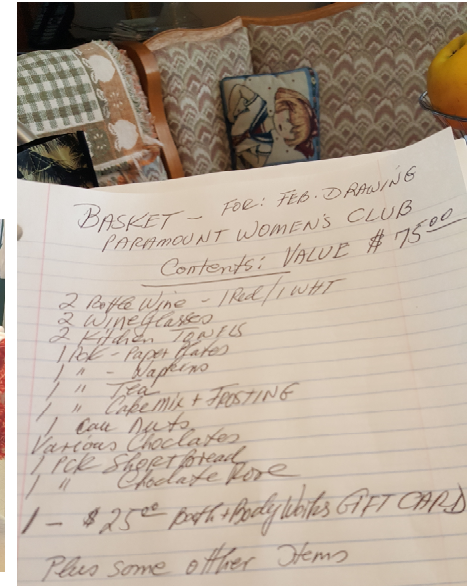 BASKET - FOR: FEB. DRAWING
PARAMOUNT WOMEN'S CLUB
Contents: VALUE $75.00
2 Bottle Wine - 1 Red / 1 WHT
2 Wine Glasses
2 Kitchen TOWELS
1 Pck - Paper Plates
1 " - Napkins
1 " Tea
1 " Cake mix + FROSTING
1 Can Nuts
Various Choclates
1 Pck Shortbread
1 " Choclate Rose
1 - $25.00 Bath + Body Works GIFT CARD
Plus some other Items